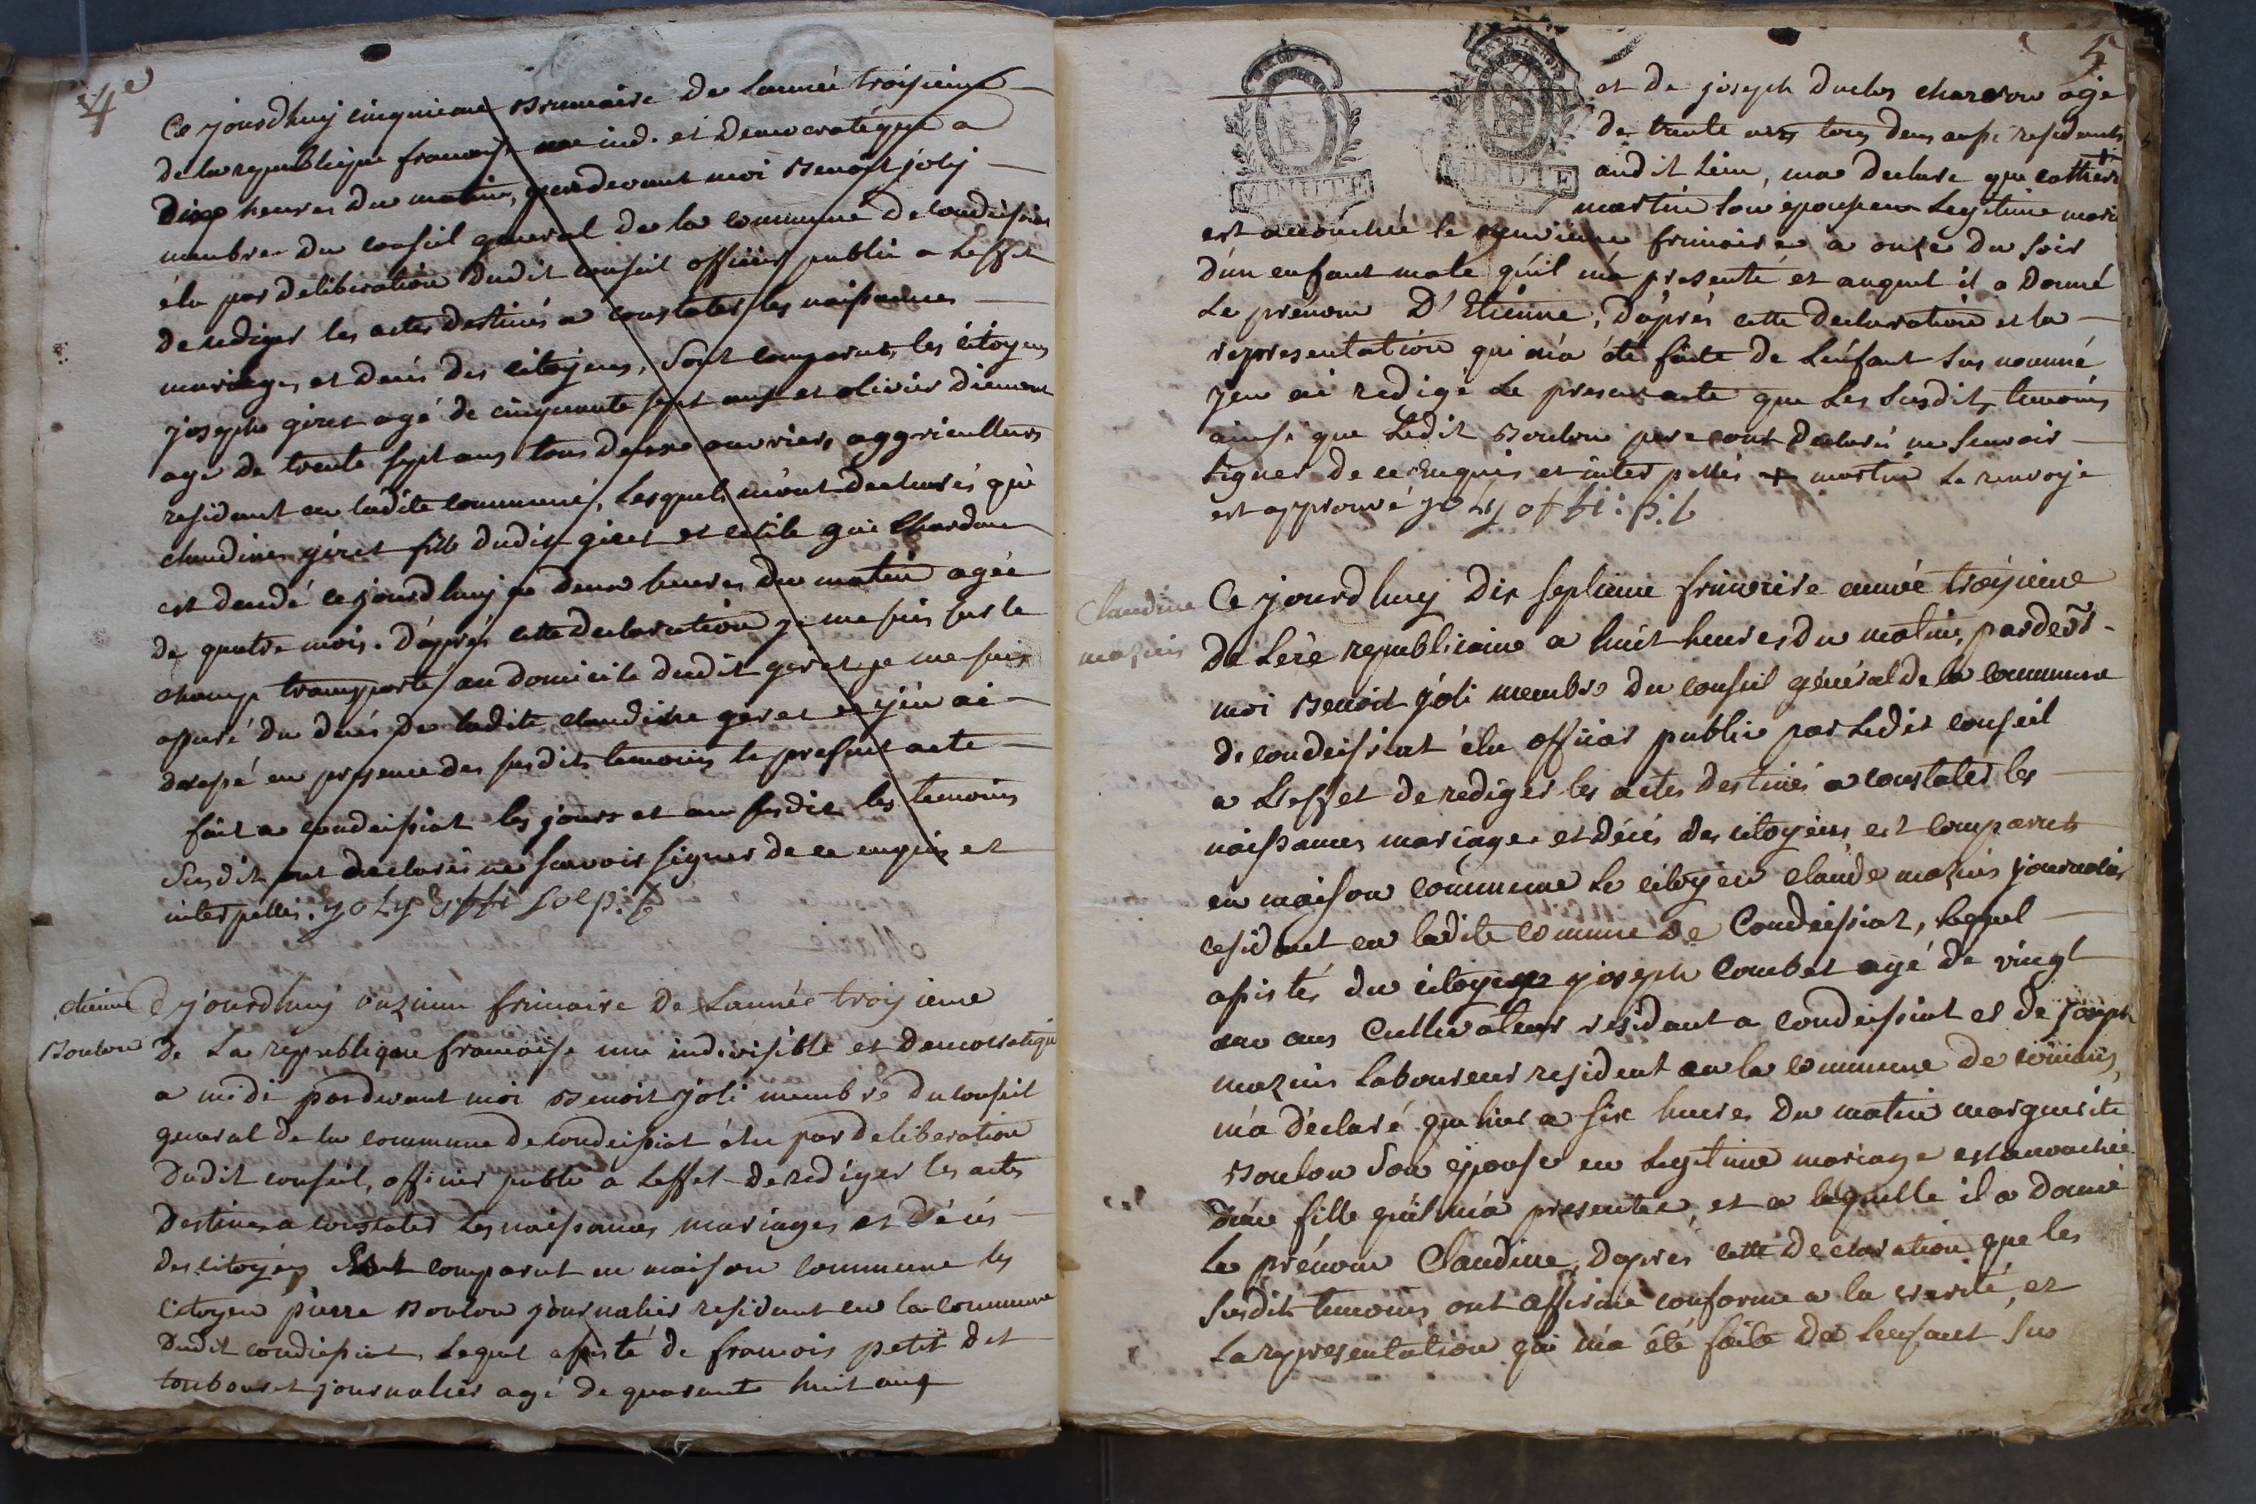 4e
Ce jourdhuy cinquieme Brumaire de Lannée troisieme
de la republique francaise une ind. et democratique a
dix heures du matin, pardevant moi Benoit joly
membre du conseil general de la commune de condeissiat
élu par deliberation dudit conseil officier public a Leffet
de rediger les actes destinés a constater les naissances
mariages et decés des citoyens, sont comparuts les citoyens
joseph giret agé de cinquante sept ans et olivier
agé de trente sept ans tous deux ouvriers aggriculteurs
residant en ladite commune, Lesquels m'ont declarés que
claudine giret fille dudit giret et
est decedé cejourdhuy a deux heures du matin agée
de quatre mois. D'après cette declaration je me suis sur le
champ transporté au domicile dudit giret je me suis
assuré du decés de ladite claudine giret et j'en ai
dressé en presence des susdits temoins le present acte
fait a condeissiat les jours et an susdit les temoins
susdit ont declarés ne scavoir signer de ce enquis et
interpellés. joly offi
etienne
Boulon
Cejourdhuy onzieme frimaire de Lannée troisieme
de La republique francaise une indivisible et democratique
a midi pardevant moi Benoit joli membre du conseil
general de la commune de condeissiat élu par deliberation
dudit conseil, officier public a Leffet de rediger les actes
destines a constater Les naissances mariages et décés
des citoyens Est comparut en maison commune les
citoyen pierre Boulon journalier residant en la commune
dudit condeissiat, Lequel assisté de francois petit dit
journalier agé de quarante huit ans
5
MINUTE
MINUTE
et de joseph duclos charron agé
de trente ans tous deux aussi residants
audit Lieu, ma declaré que catherine +
martin son épouse en Legitime mari
est accouchée le neuvieme frimaire a onze du soir
d'un enfant male qu'il m'a presenté et auquel il a donné
Le prénom D'Etienne, d'après cette declaration et la
representation qui m'a été faite de Lenfant sus nommé
j'en ai redigé Le present acte que Les susdits temoins
ainsi que Ledit Boulon pere ont declarés ne scavoir
signer de ce enquis et interpellés + martin Le renvoje
est approuvé joly offi. p. b
Claudine
mazuis
Ce jourdhuy Dix septieme frimaire année troisieme
De Lère republicaine a huit heures du matin, pardevt
moi Benoit joli membre du conseil général de la commune
de condeissiat élu officier public par Ledit conseil
a Leffet de rediger les actes destinés a constater les
naissances mariages et décés des citoyens est comparut
en maison commune Le citoyen claude mazuis journalier
residant en ladite commune de Condeissiat, Lequel
assistés du citoyen joseph combet agé de vingt
ans cultivateur residant a condeissiat et de joseph
mazuis Laboureur resident en la commune de romans,
m'a déclaré que hier a six heures du matin marguerite
Boulon son épouse en Legitime mariage est accouchée
d'une fille qu'il m'a presentée, et a laquelle il a donné
Le prénom Claudine, dapres cette declaration que les
susdits temoins ont affirmé conforme a la verité, et
La representation qui m'a été faite de Lenfant sus